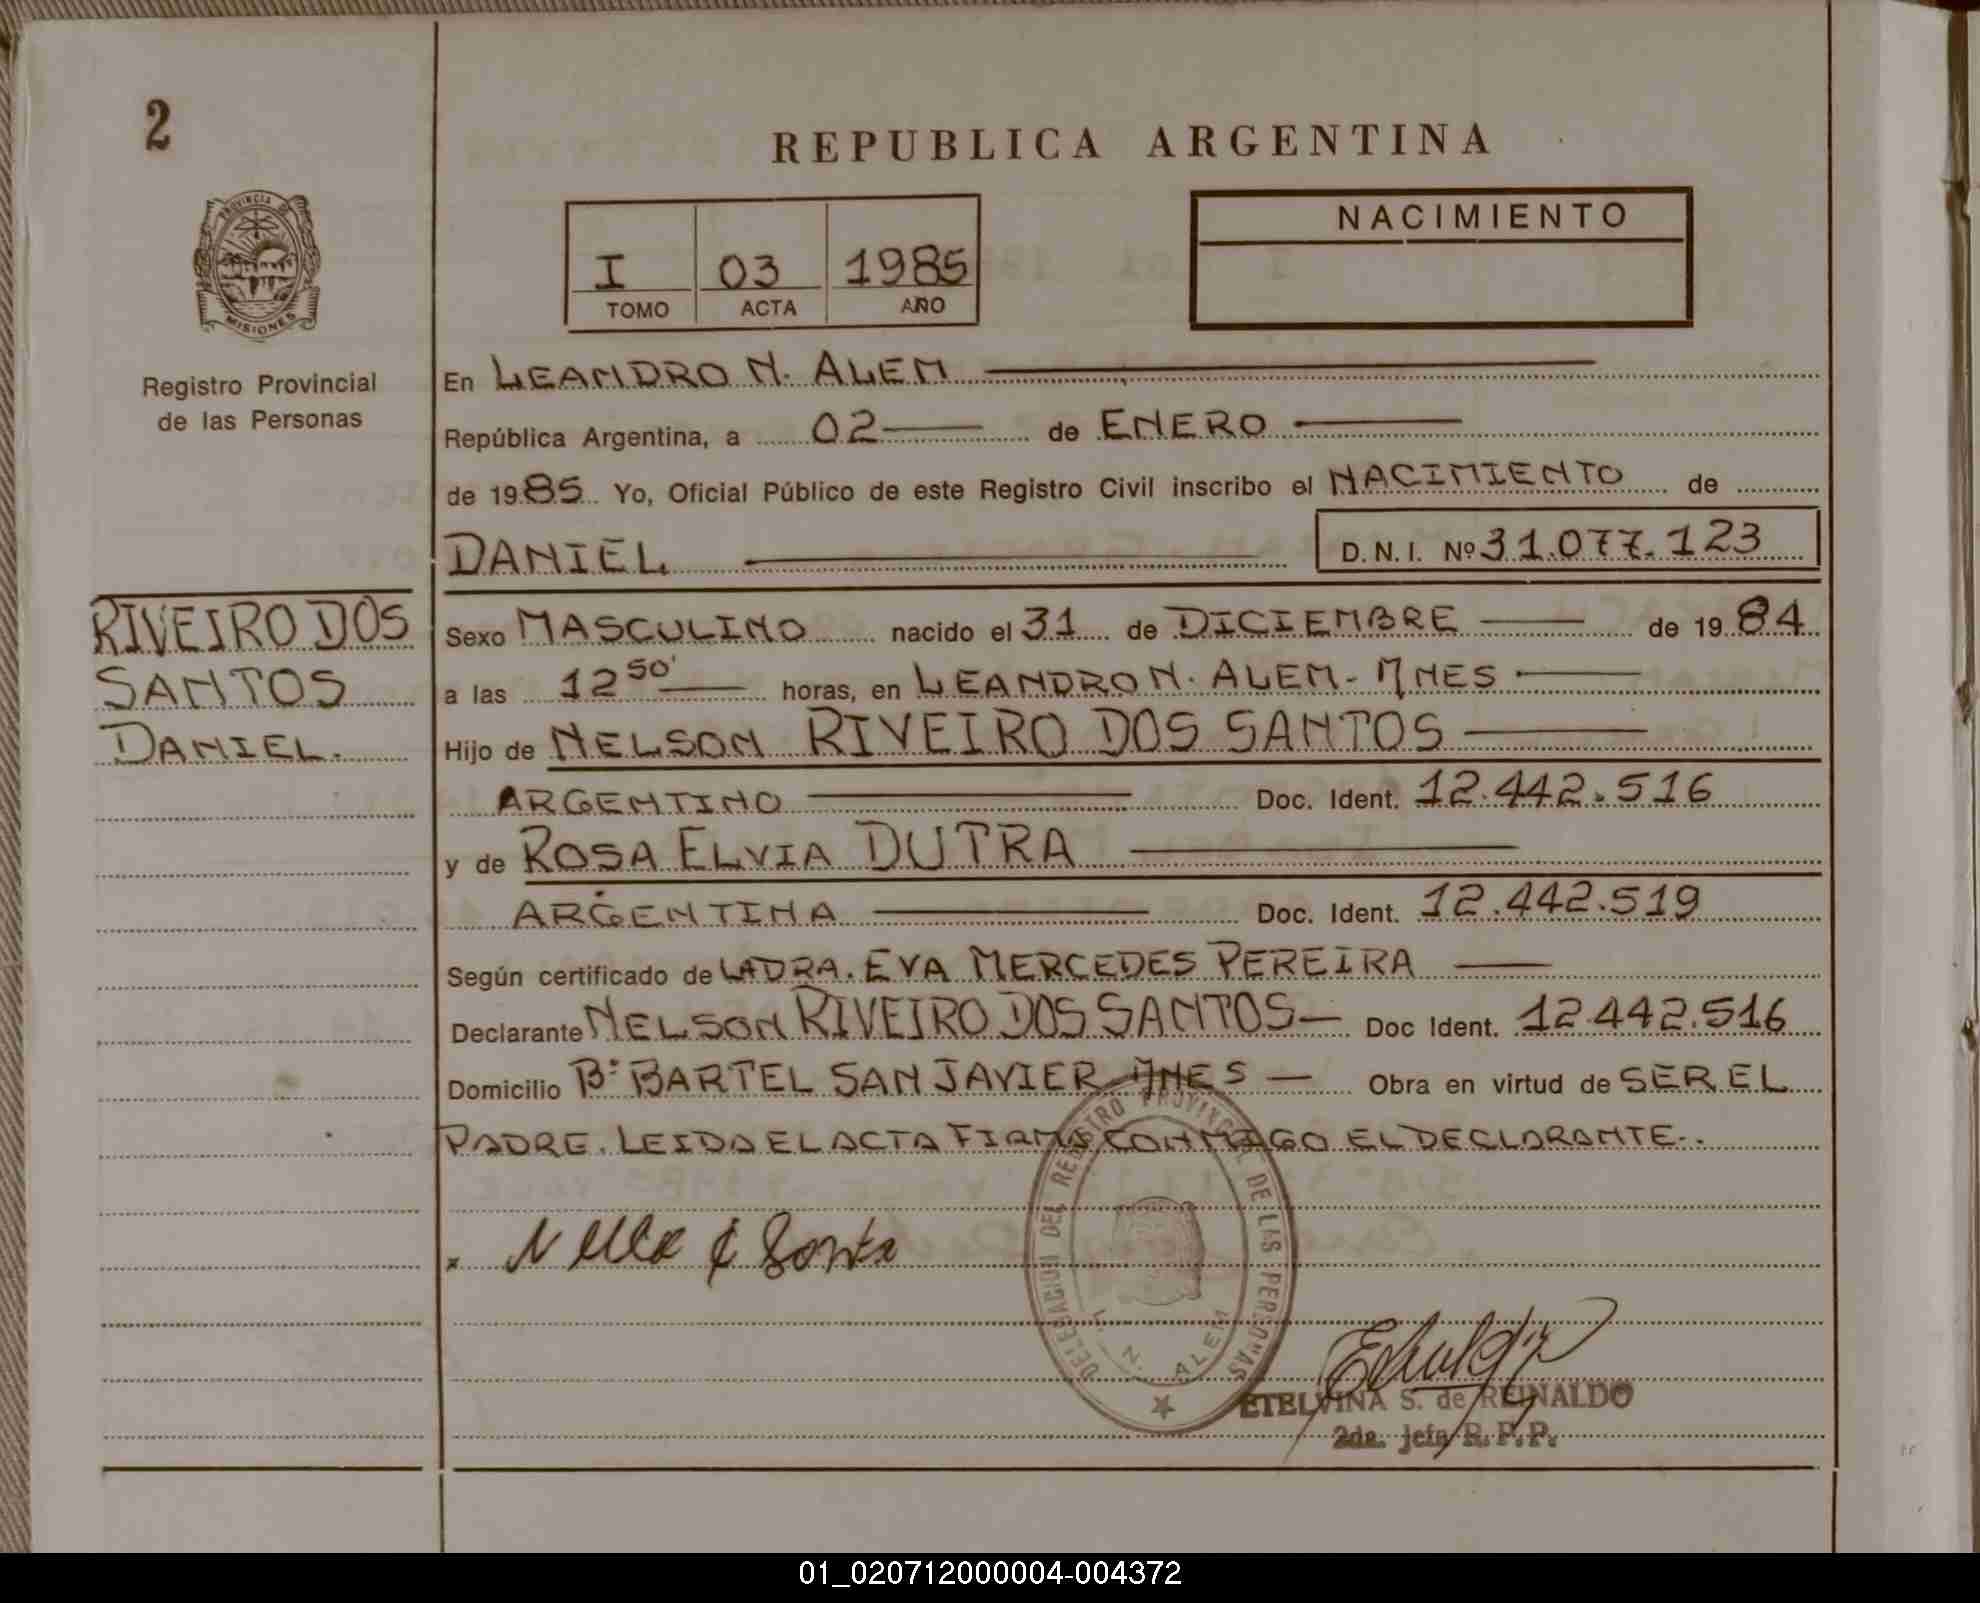 2
REPUBLICA ARGENTINA
PROVINCIA DE
MISIONES
Registro Provincial
de las Personas
I 03 1985
TOMO ACTA AÑO
NACIMIENTO
En LEANDRO N. ALEM
República Argentina, a 02 de ENERO
de 1985 Yo, Oficial Público de este Registro Civil inscribo el NACIMIENTO de
DANIEL D.N.I. Nº 31.077.123
RIVEIRO DOS
SANTOS
DANIEL.
Sexo MASCULINO nacido el 31 de DICIEMBRE de 1984
a las 12 50' horas, en LEANDRO N. ALEM - MNES
Hijo de NELSON RIVEIRO DOS SANTOS
ARGENTINO Doc. Ident. 12.442.516
y de ROSA ELVIA DUTRA
ARGENTINA Doc. Ident. 12.442.519
Según certificado de LA DRA. EVA MERCEDES PEREIRA
Declarante NELSON RIVEIRO DOS SANTOS Doc Ident. 12.442.516
Domicilio Bº BARTEL SAN JAVIER MNES Obra en virtud de SER EL
PADRE. LEIDA EL ACTA FIRMA CONMIGO EL DECLARANTE.
DELEGACION DEL REGISTRO PROVINCIAL DE LAS PERSONAS
L. N. ALEM
ETELVINA S. de REINALDO
2da. jefa R. P. P.
01_020712000004-004372